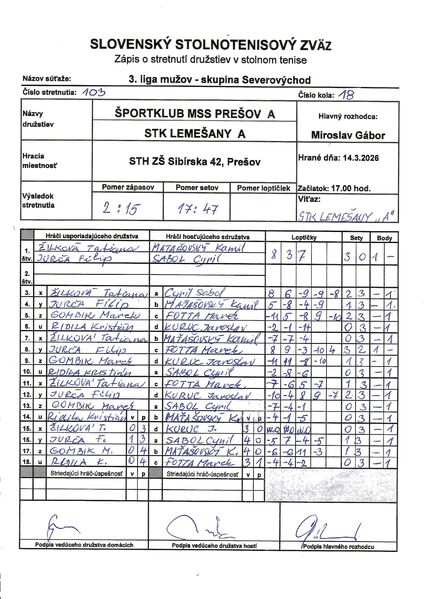 SLOVENSKÝ STOLNOTENISOVÝ ZVÄZ
Zápis o stretnutí družstiev v stolnom tenise
Názov súťaže: 3. liga mužov - skupina Severovýchod
Číslo stretnutia: 103 Číslo kola: 18
Názvy družstiev ŠPORTKLUB MSS PREŠOV A Hlavný rozhodca:
STK LEMEŠANY A Miroslav Gábor
Hracia miestnosť STH ZŠ Sibírska 42, Prešov Hrané dňa: 14.3.2026
Výsledok stretnutia Pomer zápasov Pomer setov Pomer loptičiek Začiatok: 17.00 hod.
2:15 17:47 Víťaz: STK LEMEŠANY "A"
Hráči usporiadajúceho družstva Hráči hosťujúceho družstva Loptičky Sety Body
1. štv. ŽILKOVÁ Tatiana MATAŠOVSKÝ Kamil 8 3 7 3 0 1 -
JURČA Filip SABOL Cyril
2. štv.
3. x ŽILKOVÁ Tatiana a Cyril Sabol 8 6 -9 -9 -8 2 3 - 1
4. y JURČA FILIP b MATAŠOVSKÝ Kamil
5. z GOMBIK Marek c FOTTA Marek -11 5 8 -9 -10 2 3 - 1
6. u RIDILA Kristián d KURUC Jaroslav -2 -1 -11 0 3 - 1
7. x ŽILKOVÁ Tatiana b MATAŠOVSKÝ Kamil -7 -7 -4 0 3 - 1
8. y JURČA Filip c FOTTA Marek 8 9 -3 -10 4 3 2 1 -
9. z GOMBIK Marek d KURUC Jaroslav
10. u RIDILA KRISTIÁN a SABOL Cyril -2 -8 -6 0 3 - 1
11. x ŽILKOVÁ Tatiana c FOTTA Marek 1 3 - 1
12. y JURČA Filip d KURUC Jaroslav -10 -4 8 9 -7 2 3 - 1
13. z GOMBIK Marek a SABOL Cyril -7 -4 -1 0 3 - 1
14. u Ridila Kristián v p b MATAŠOVSKÝ v p
15. x ŽILKOVÁ T. 0 3 d KURUC J. 3 0 0 3 - 1
16. y JURČA F. 1 3 a SABOL Cyril 4 0 -5 7 -4 -5 1 3 - 1
17. z GOMBIK M. 0 4 b MATAŠOVSKÝ K. 4 0 -6 -6 11 -3 1 3 - 1
18. u RIDILA K. 0 4 c FOTTA Marek 3 1 -4 -4 -2 0 3 - 1
Striedajúci hráč-úspešnosť v p Striedajúci hráč-úspešnosť v p
Podpis vedúceho družstva domácich Podpis vedúceho družstva hostí Podpis hlavného rozhodcu